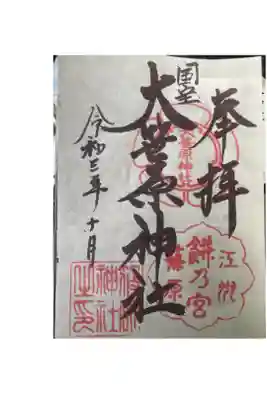 奉拝
国宝
大笹原神社
令和三年十月
大笹原神社
江州
餅乃宮
篠原
篠原
神社
之印